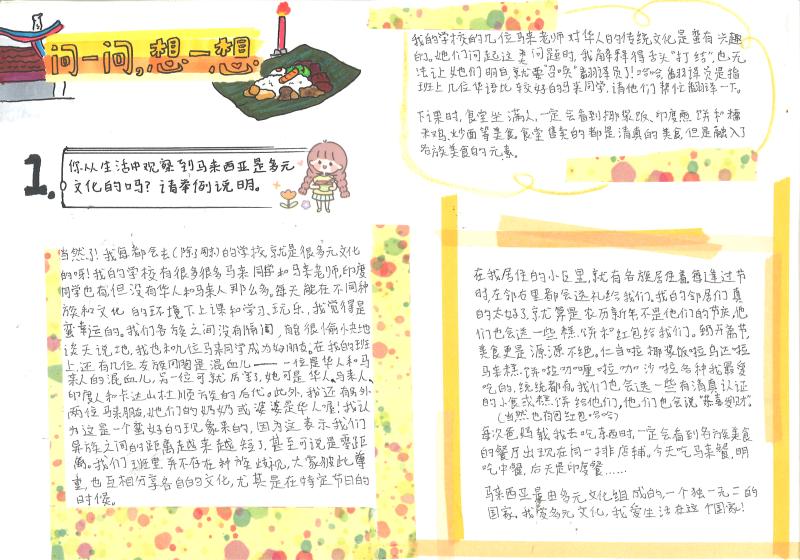 问一问，想一想。
1.
你从生活中观察到马来西亚是多元
文化的吗？请举例说明。
当然了！我每都会去（除了周末）的学校就是很多元文化
的呀！我的学校有很多很多马来同学和马来老师，印度
同学也有，但没有华人和马来人那么多。每天能在不同种
族和文化的环境下上课和学习、玩乐，我觉得是
蛮幸运的。我们各族之间没有隔阂，能很愉快地
谈天说地，我也和几位马来同学成为好朋友。在我的班
上，还有几位友族同学是混血儿——一位是华人和马
来人的混血儿，另一位可就厉害了，她可是华人、马来人、
印度人和卡达山杜顺族的后代。此外，我还有另外
两位马来朋友，她们的奶奶或婆婆是华人喔！我认
为这是一个蛮好的现象来的，因为这表示我们
异族之间的距离越来越短了，甚至可说是零距
离。我们班里并不存在种族歧视，大家彼此尊
重，也互相分享各自的文化，尤其是在特定节日的
时候。
我的学校的几位马来老师对华人的传统文化是蛮有兴趣
的。她们问起这类问题时，我解释得舌头“打结”，也无
法让她们明白，就要“召唤”翻译员了！哈哈，翻译员是指
班上几位华语比较好的马来同学，请他们帮忙翻译一下。
下课时，食堂坐满人，一定会看到椰浆饭、印度煎饼和糯
米鸡、炒面等美食。食堂售卖的都是清真的美食，但是融入了
各族美食的元素。
在我居住的小区里，就有各族居住着。每逢过节
时，左邻右里都会送礼给我们。我的邻居们真
的太好了，就算是农历新年不是他们的节庆，他
们也会送一些糕、饼和红包给我们。到了开斋节，
美食更是源源不绝。仁当啦、椰浆饭啦、乌达啦、
马来糕、饼啦、咖喱啦、叻沙啦，各种我最爱
吃的，统统都有。我们也会送一些有清真认证
的小食或糕饼给他们，他们也会说“恭喜发财”。
（当然也有包红包，哈哈）
每次爸妈载我去吃东西时，一定会看到各族美食
的餐厅出现在同一排店铺。今天吃马来餐，明
吃中餐，后天是印度餐……
马来西亚是由多元文化组成的，一个独一无二的
国家。我爱多元文化，我爱生活在这个国家！